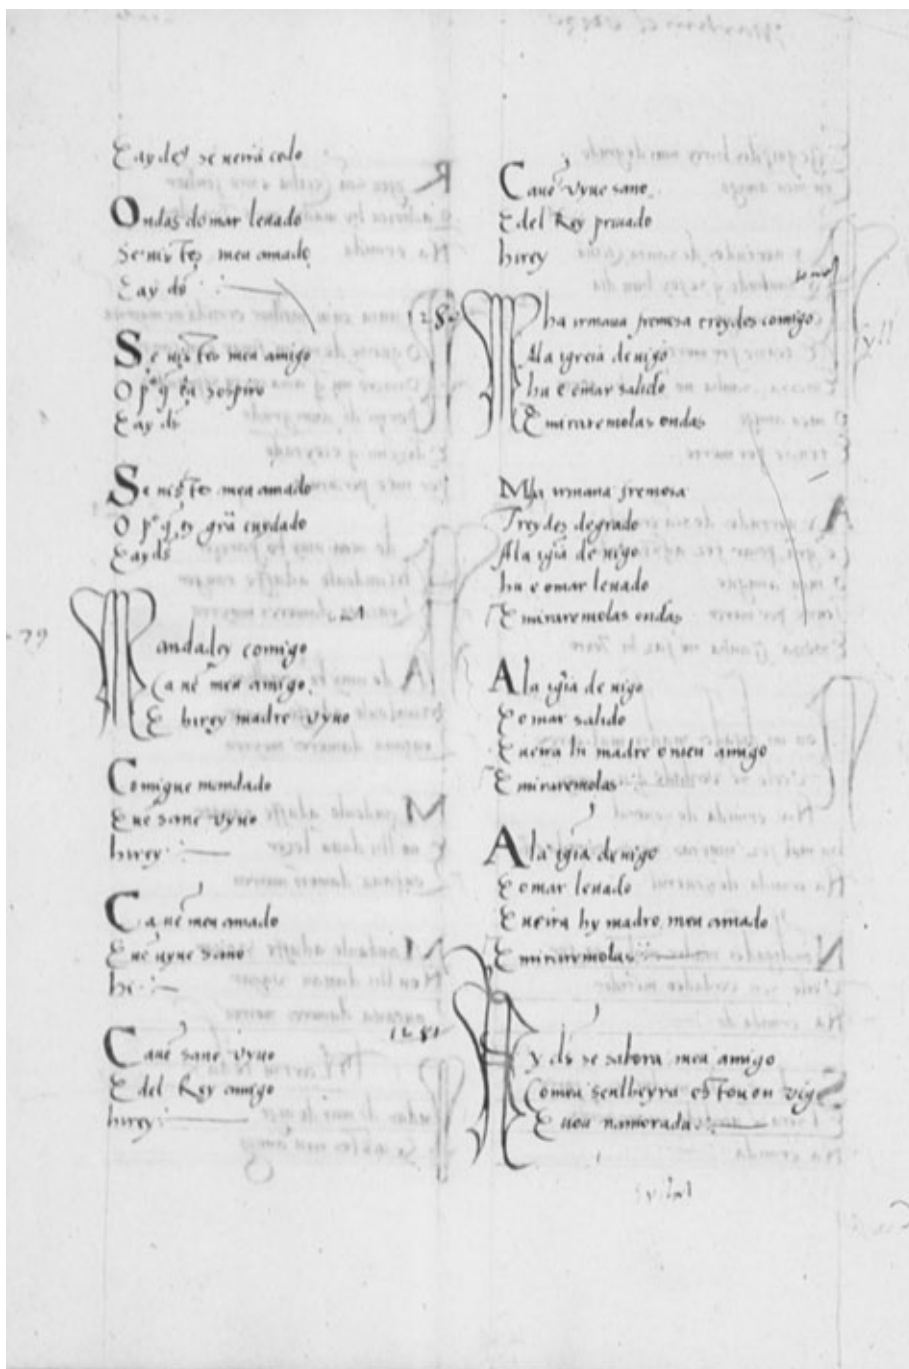 E ay de9 se uerra cedo
Ondas do mar leuado
Se uistes meu amado
E ay ds
Se uistes meu amigo
O por que eu sospiro
E ay ds
Se uistes meu amado
O por que ey grã cuydado
E ay ds
79
Mandadey comigo
Ca uẽ meu amigo
E hirey madre uyuo
Comigue mandado
E uẽ sane uyuo
hirey
Ca uẽ meu amado
E uẽ uyue sano
hi
Ca uẽ sane uyuo
E del Rey amigo
hirey
Ca uẽ uyue sano
E del Rey priuado
hirey
1280
Mha irmana fremosa treydes comigo
Ala igreia deuigo
hu e omar salido
E miraremolas ondas
Mha irmana fremosa
Treydes degrado
Ala igia de uigo
hu e omar leuado
E miraremolas ondas
A la igia de uigo
E omar salido
E ueira hi madre omeu amigo
E miraremolas
A la igia deuigo
E omar leuado
E ueira hy madre meu amado
E miraremolas
1281
Ay ds se sabora meu amigo
Comeu senlheyra estou en uigo
E uou namorada